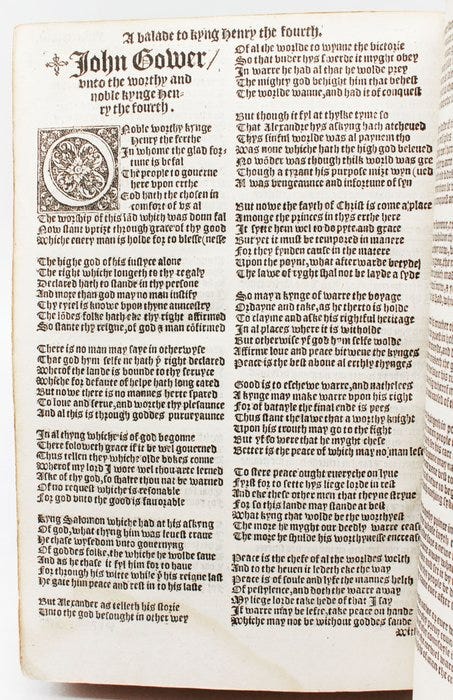 A balade to kyng Henry the fourth.
John Gower/
vnto the worthy and
noble kynge Hen-
ry the fourth.
O Noble worthy kynge
Henry the ferthe
In whome the glad for-
tune is befal
The people to gouerne
here vpon erthe
God hath the chosen in
comfort of vs al
The worship of this lãd which was doun fal
Now stant vprizt through grace of thy good
Whiche euery man is holde for to blesse (nesse
The highe god of his iustyce alone
The right whiche longeth to thy regaly
Declared hath to stande in thy persone
And more than god may no man iustify
Thy tytel is knowe vpon thyne auncestry
The lõdes folke hath eke thy right affirmed
So stante thy reigne, of god & man cõfirmed
There is no man may saye in otherwyse
That god hym selfe ne hath þ right declared
Wherof the lande is bounde to thy seruyce
Whiche for defaute of helpe hath long cared
But nowe there is no mannes herte spared
To loue and serue, and worthe thy plesaunce
And al this is through goddes purueyaunce
In al thyng whiche is of god begonne
There foloweth grace if it be wel gouerned
Thus tellen they whiche olde bokes conne
Wherof my lord I wote wel thou arte lerned
Aske of thy god, so shalte thou nat be warned
Of no request whiche is resonable
For god vnto the good is fauorable
Kyng Salomon whiche had at his askyng
Of god, what thyng him was leuest craue
He chase wysedom vnto gouernyng
Of goddes folke, the whiche he wolde saue
And as he chase it fyl him for to haue
For through his witte while þ his reigne last
He gate him peace and rest in to his laste
But Alexander as telleth his storie
Unto the god besought in other wey
Of al the worlde to wynne the victorie
So that vnder hys swerde it myght obey
In warre he had al that he wolde prey
The mighty god behight him that behest
The worlde wanne, and had it of conquest
But though it fyl at thylke tyme so
That Alexander hys askyng hath atcheued
Thys sinful worlde was al paynem tho
Was none whiche hath the high god beleued
No wõder was though thilk world was gre
Though a tyrant his purpose mizt wyn (ued
Al was vengeaunce and infortune of syn
But nowe the fayth of Christ is come a place
Amonge the princes in thys erthe here
It sytte hem wel to do pyte and grace
But yet it must be tempored in manere
For they fynden cause in the matere
Upon the poynt, what afterwarde betydel
The lawe of ryght shal not be layde a syde
So may a kynge of warre the voyage
Ordayne and take, as he therto is holde
To clayme and aske his rightful heritage
In al places where it is witholde
But otherwise yf god hym selfe wolde
Affirme loue and peace bitwene the kynges
Peace is the best aboue al erthly thynges
God is to eschewe warre, and nathelees
A kynge may make warre vpon his right
For of batayle the final ende is pees
Thus stant the lawe that a worthy knight
Upon his trouth may go to the fight
But yf so were that he myght chese
Better is the peace of which may no man lese
To stere peace ought eueryche on lyue
Fyrst for to sette hys liege lorde in rest
And eke these other men that they ne stryue
For so this lande may stande at best
What kyng that wolde be the worthyest
The more he myght our deedly warre cease
The more he shulde his worthynesse encrease
Peace is the chefe of al the worldes welth
And to the heuen it ledeth eke the way
Peace is of soule and lyfe the mannes helth
Of pestylence, and doth the warre away
My liege lorde take hede of that I say
If warre may be lefte, take peace on hande
Whiche may not be without goddes sande
With